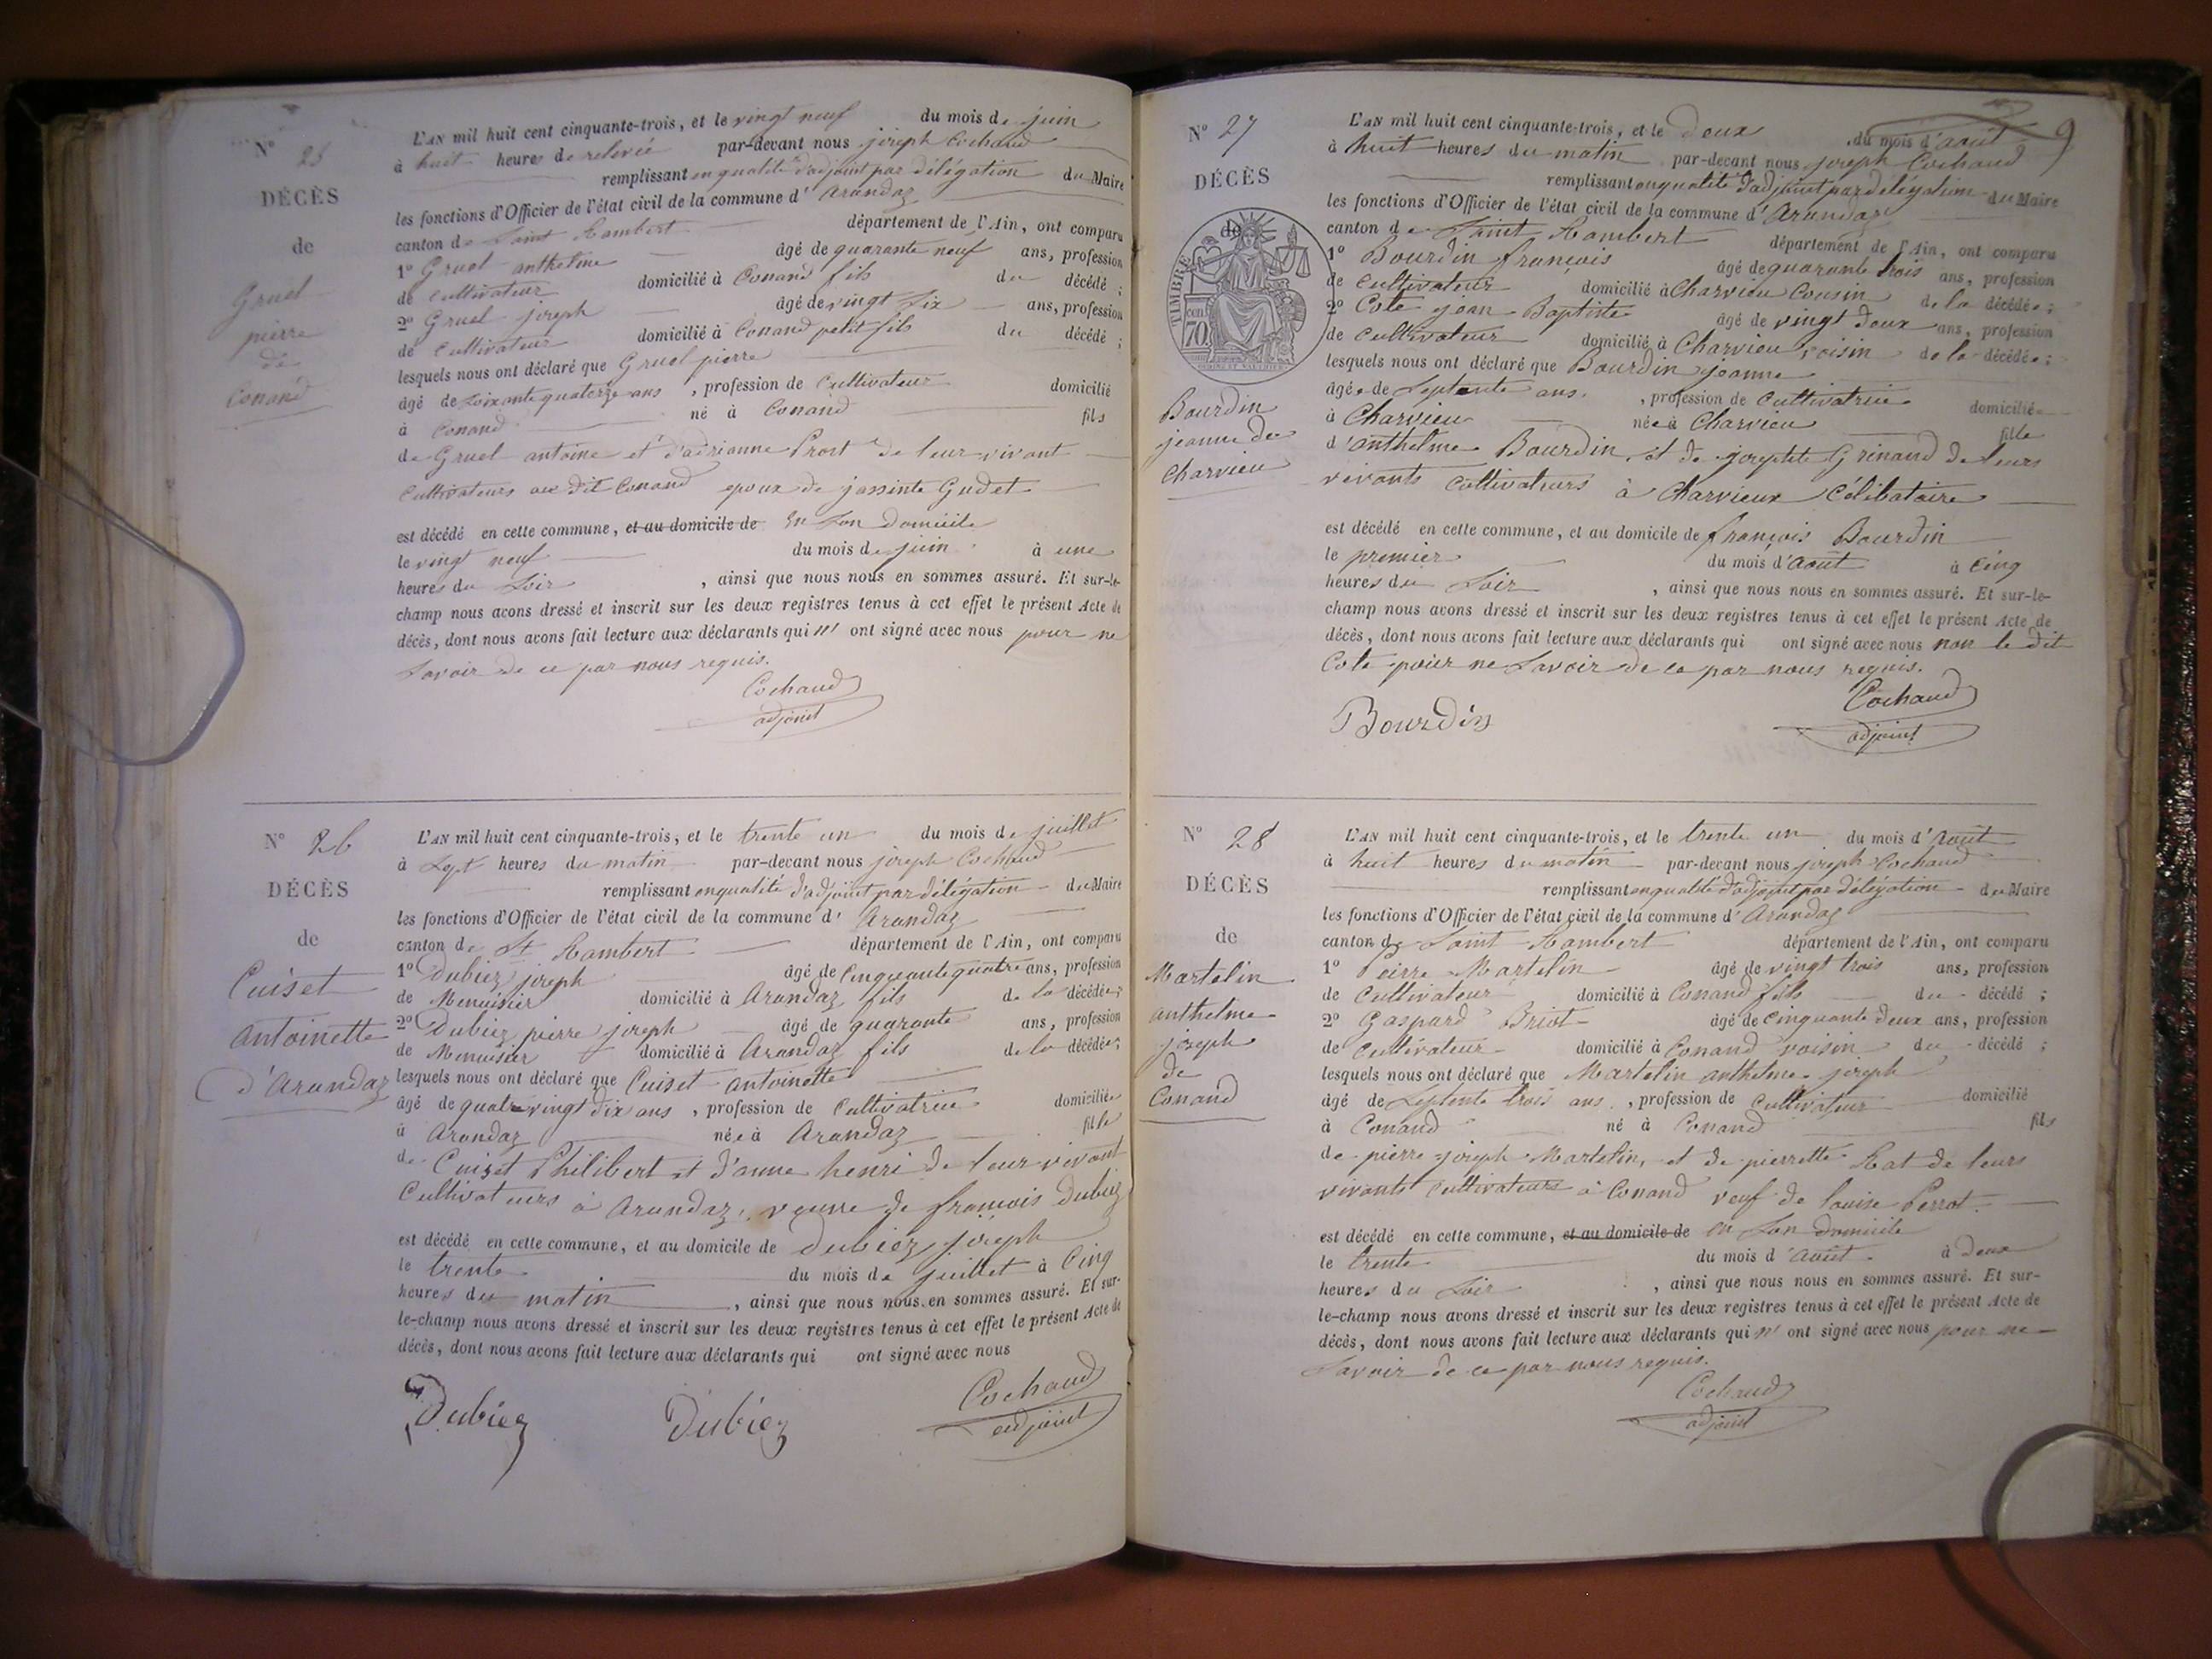 N° 25
DÉCÈS
de
Gruel
pierre
de
Conand
L'AN mil huit cent cinquante-trois, et le vingt neuf du mois de juin
à huit heures de relevée par-devant nous joseph Cochaud
remplissant en qualité d'adjoint par délégation du Maire
les fonctions d'Officier de l'état civil de la commune d' Arandaz
canton de Saint Rambert département de l'Ain, ont comparu
1° Gruel anthelme âgé de quarante neuf ans, profession
de Cultivateur domicilié à Conand fils du décédé ;
2° Gruel joseph âgé de vingt six ans, profession
de Cultivateur domicilié à Conand petit fils du décédé ;
lesquels nous ont déclaré que Gruel pierre
âgé de soixante quatorze ans , profession de Cultivateur domicilié
à Conand né à Conand fils
de Gruel antoine et d'adrianne Prost de leur vivant
Cultivateurs au dit Conand epoux de jassinte Gudet
est décédé en cette commune, et au domicile de En son domicile
le vingt neuf du mois de juin à une
heures du soir , ainsi que nous nous en sommes assuré. Et sur-le-
champ nous avons dressé et inscrit sur les deux registres tenus à cet effet le présent Acte de
décès, dont nous avons fait lecture aux déclarants qui n' ont signé avec nous pour ne
savoir de ce par nous requis.
Cochaud
adjoint
N° 26
DÉCÈS
de
Cuiset
antoinette
d'Arandaz
L'AN mil huit cent cinquante-trois, et le trente un du mois de juillet
à sept heures du matin par-devant nous joseph Cochaud
remplissant en qualité d'adjoint par délégation du Maire
les fonctions d'Officier de l'état civil de la commune d' Arandaz
canton de St Rambert département de l'Ain, ont comparu
1° Dubiez joseph âgé de Cinquante quatre ans, profession
de Menuisier domicilié à Arandaz fils de la décédée ;
2° Dubiez pierre joseph âgé de quarante ans, profession
de Menuisier domicilié à Arandaz fils de la décédée ;
lesquels nous ont déclaré que Cuiset antoinette
âgé de quatre vingt dix ans , profession de Cultivatrice domiciliée
à Arandaz née à Arandaz fille
de Cuiset Philibert et d'anne henri de leur vivant
Cultivateurs à Arandaz, veuve de françois Dubiez
est décédé en cette commune, et au domicile de Dubiez joseph
le trente du mois de juillet à Cinq
heures du matin , ainsi que nous nous en sommes assuré. Et sur-
le-champ nous avons dressé et inscrit sur les deux registres tenus à cet effet le présent Acte de
décès, dont nous avons fait lecture aux déclarants qui ont signé avec nous
Dubiez Dubiez Cochaud
adjoint
9
N° 27
DÉCÈS
de
TIMBRE
cen 70
Bourdin
jeanne de
Charvieu
L'AN mil huit cent cinquante-trois, et le Deux du mois d'août
à huit heures du matin par-devant nous joseph Cochaud
remplissant en qualité d'adjoint par délégation du Maire
les fonctions d'Officier de l'état civil de la commune d' Arandaz
canton de Saint Rambert département de l'Ain, ont comparu
1° Bourdin françois âgé de quarante trois ans, profession
de Cultivateur domicilié à Charvieu Cousin de la décédée ;
2° Cote jean Baptiste âgé de vingt deux ans, profession
de Cultivateur domicilié à Charvieu voisin de la décédée ;
lesquels nous ont déclaré que Bourdin jeanne
âgée de Septente ans. , profession de Cultivatrice domiciliée
à Charvieu née à Charvieu fille
d'anthelme Bourdin, et de josephte Grinand de leurs
vivants Cultivateurs à Charvieux Célibataire
est décédé en cette commune, et au domicile de françois Bourdin
le premier du mois d'août à Cinq
heures du soir , ainsi que nous nous en sommes assuré. Et sur-le-
champ nous avons dressé et inscrit sur les deux registres tenus à cet effet le présent Acte de
décès, dont nous avons fait lecture aux déclarants qui ont signé avec nous non le dit
Cote pour ne savoir de ce par nous requis.
Bourdin Cochaud
adjoint
N° 28
DÉCÈS
de
Martelin
anthelme
joseph
de
Conand
L'AN mil huit cent cinquante-trois, et le trente un du mois d'août
à huit heures du matin par-devant nous joseph Cochaud
remplissant en qualité d'adjoint par délégation du Maire
les fonctions d'Officier de l'état civil de la commune d' Arandaz
canton de Saint Rambert département de l'Ain, ont comparu
1° Peirre Martelin âgé de vingt trois ans, profession
de Cultivateur domicilié à Conand fils du décédé ;
2° Gaspard Briot âgé de Cinquante deux ans, profession
de Cultivateur domicilié à Conand voisin du décédé ;
lesquels nous ont déclaré que Martelin anthelme joseph
âgé de Septente trois ans , profession de Cultivateur domicilié
à Conand né à Conand fils
de pierre joseph Martelin, et de pierrette Rat de leurs
vivants Cultivateurs à Conand veuf de louise Perrot.
est décédé en cette commune, et au domicile de en son domicile
le trente du mois d'août à deux
heures du soir , ainsi que nous nous en sommes assuré. Et sur-
le-champ nous avons dressé et inscrit sur les deux registres tenus à cet effet le présent Acte de
décès, dont nous avons fait lecture aux déclarants qui n' ont signé avec nous pour ne
savoir de ce par nous requis.
Cochaud
adjoint